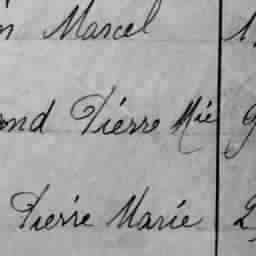 n Marcel 1
ond Piérre Mie 9
Pierre Marie 2